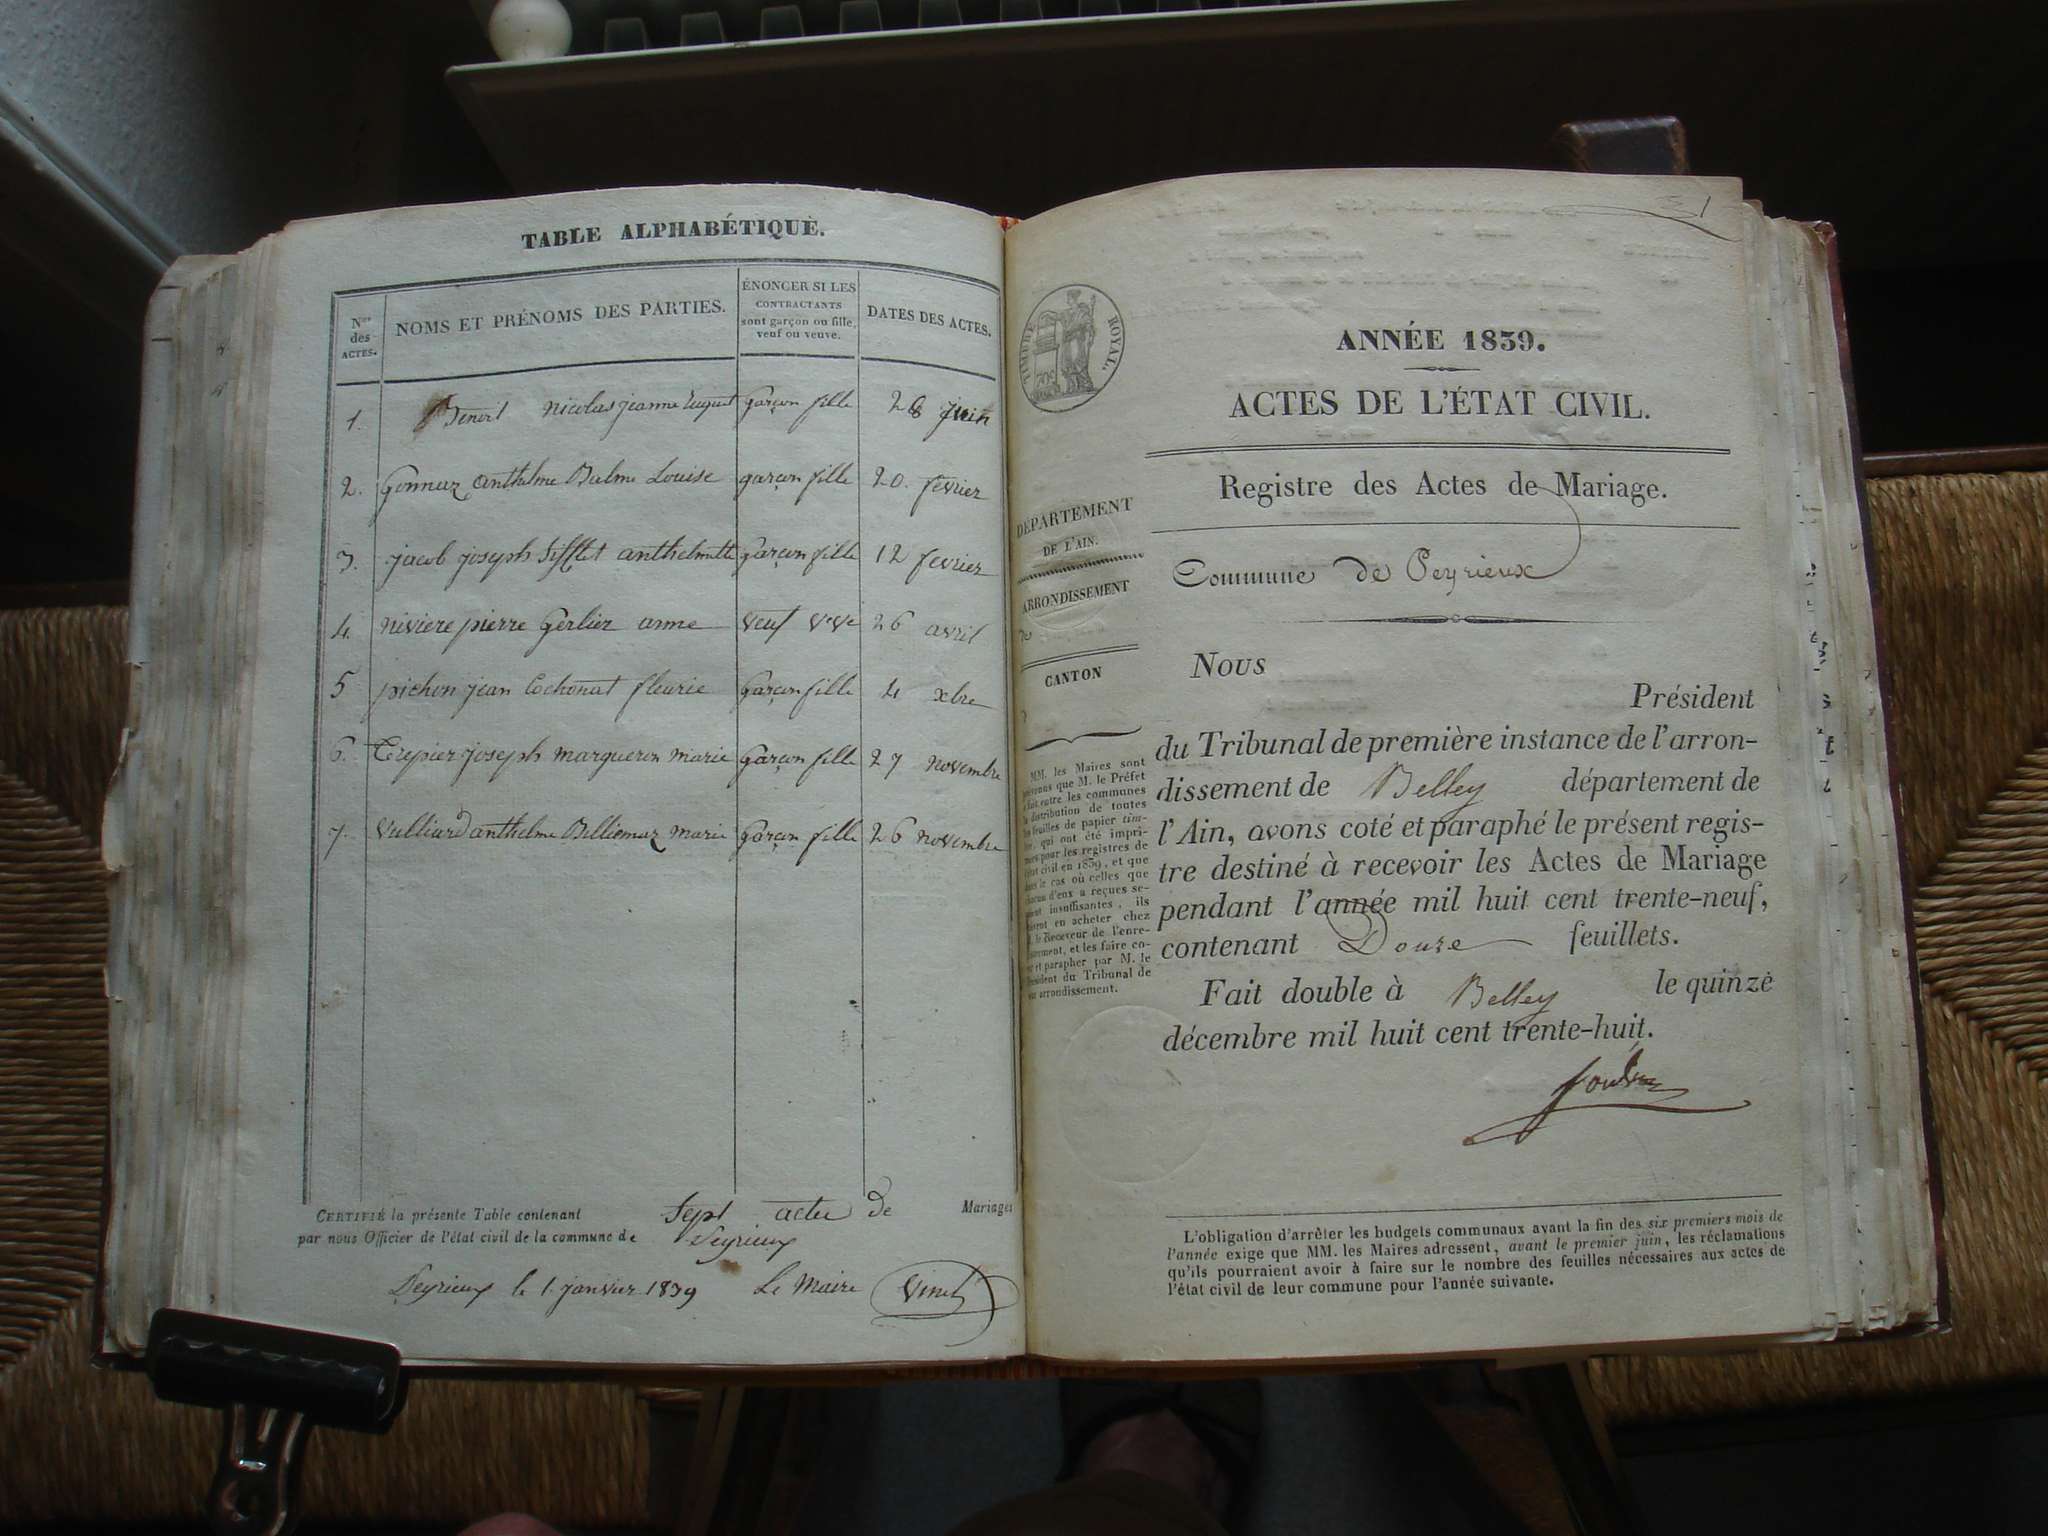 TABLE ALPHABÉTIQUE.
Nos des ACTES.
NOMS ET PRÉNOMS DES PARTIES.
ÉNONCER SI LES
CONTRACTANTS
sont garçon ou fille,
veuf ou veuve.
DATES DES ACTES.
1. Benoit Nicolas jeanne garçon fille 28 juin
2. Gonnaz anthelme Balme Louise garçon fille 20. fevrier
3. jacob joseph Sifflet anthelmette Garçon fille 12 fevrier
4. niviere pierre Gerlier anne veuf vve 26 avril
5 pichon jean Cochonat fleurie Garçon fille 4 xbre
6. Trepier joseph margueron marie Garçon fille 27 novembre
7. Vulliard anthelme Billiemaz marie Garçon fille 26 novembre
CERTIFIÉ la présente Table contenant Sept actes de Mariages
par nous Officier de l'état civil de la commune de Peyrieux
Peyrieux le 1. janvier 1839 Le Maire Vinet
31
TIMBRE ROYAL.
ANNÉE 1839.
ACTES DE L'ÉTAT CIVIL.
Registre des Actes de Mariage.
DÉPARTEMENT
DE L'AIN.
ARRONDISSEMENT
de
CANTON
Commune de Peyrieux
Nous
Président
du Tribunal de première instance de l'arron-
dissement de Belley département de
l'Ain, avons coté et paraphé le présent regis-
tre destiné à recevoir les Actes de Mariage
pendant l'année mil huit cent trente-neuf,
contenant Douze feuillets.
Fait double à Belley le quinze
décembre mil huit cent trente-huit.
MM. les Maires sont
que M. le Préfet
fait entre les communes
distribution de toutes
feuilles de papier tim-
qui ont été impri-
pour les registres de
civil en 1839, et que
le cas où celles que
d'eux a reçues se-
insuffisantes, ils
en acheter chez
le Receveur de l'enre-
et les faire co-
et parapher par M. le
du Tribunal de
arrondissement.
L'obligation d'arrêter les budgets communaux avant la fin des six premiers mois de
l'année exige que MM. les Maires adressent, avant le premier juin, les réclamations
qu'ils pourraient avoir à faire sur le nombre des feuilles nécessaires aux actes de
l'état civil de leur commune pour l'année suivante.